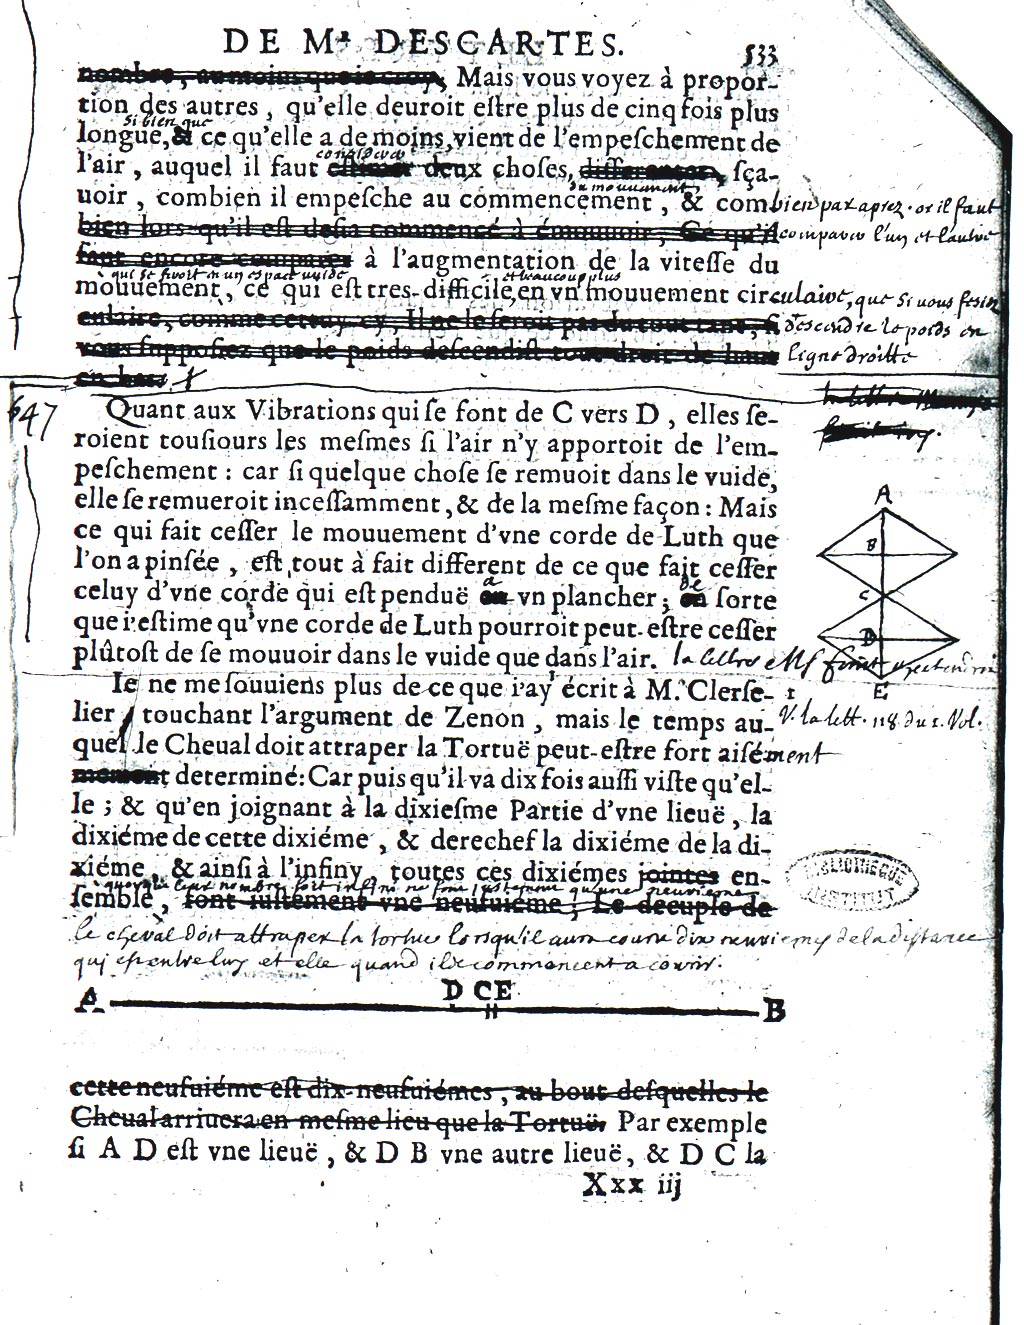 DE Mr DESCARTES. 533
nombre, au moins que ie croy, Mais vous voyez à propor-
tion des autres, qu'elle deuroit eſtre plus de cinq fois plus
si bien que
longue, & ce qu'elle a de moins, vient de l'empeſchement de
considerer
l'air, auquel il faut eſtimer deux choſes, differentes, ſça-
du mouuement
uoir, combien il empeſche au commencement, & combien par aprez. or il faut
bien lors qu'il eſt deſia commencé à émouuoir; Ce qu'il comparer l'un et l'autre
faut encore comparer à l'augmentation de la viteſſe du
qui se feroit en un espace vuide et beaucoup plus
mouuement, ce qui eſt tres-difficile, en vn mouuement circulaire, que si vous fesiez
culaire, comme cettuy-cy, Il ne le ſeroit pas du tout tant, ſi descendre le poids en
vous ſuppoſiez que le poids deſcendiſt tout droit de haut ligne droitte
en bas.
647
Quant aux Vibrations qui ſe font de C vers D, elles ſe-
roient touſiours les meſmes ſi l'air n'y apportoit de l'em-
peſchement: car ſi quelque choſe ſe remuoit dans le vuide,
elle ſe remueroit inceſſamment, & de la meſme façon: Mais
ce qui fait ceſſer le mouuement d'vne corde de Luth que
l'on a pinſée, eſt tout à fait different de ce que fait ceſſer
a de
celuy d'vne corde qui eſt penduë en vn plancher; en ſorte
que i'eſtime qu'vne corde de Luth pourroit peut-eſtre ceſſer
plûtoſt de ſe mouuoir dans le vuide que dans l'air. la lettre Ms finit
A
B
C
D
E
Ie ne me ſouuiens plus de ce que i'ay écrit à M. Clerſe-
lier, touchant l'argument de Zenon, mais le temps au- V. la lett. 118 du 1. Vol.
quel le Cheual doit attraper la Tortuë peut-eſtre fort aiſément
mement determiné: Car puis qu'il va dix fois auſſi viſte qu'el-
le; & qu'en joignant à la dixieſme Partie d'vne lieuë, la
dixiéme de cette dixiéme, & derechef la dixiéme de la di-
xiéme, & ainſi à l'infiny, toutes ces dixiémes jointes en-
quoyque leur nombre soit infini ne font justement qu'une neuvieme
ſemble, font iuſtement vne neufuiéme; Le decuple de
le cheval doit attraper la tortue lorsqu'il aura couru dix neuviemes de la distance
qui est entre luy et elle quand ils commencent a courir.
BIBLIOTHEQUE
INSTITUT
A D C E B
cette neufuiéme eſt dix-neufuiémes, au bout deſquelles le
Cheual arriuera en meſme lieu que la Tortuë. Par exemple
ſi A D eſt vne lieuë, & D B vne autre lieuë, & D C la
Xxx iij